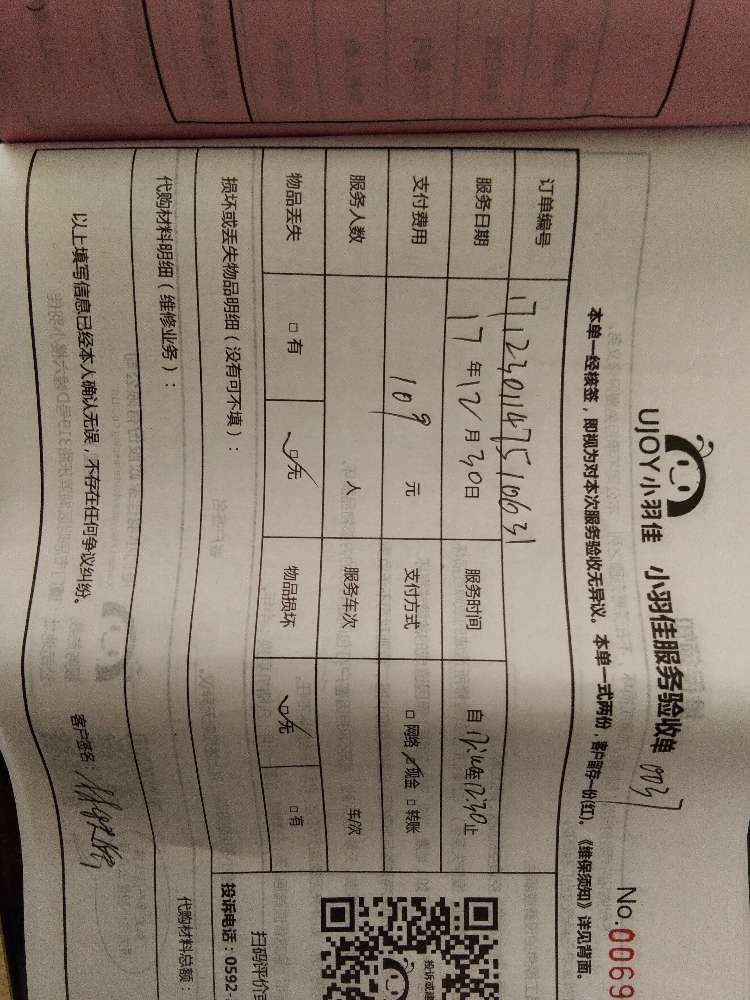 UJOY小羽佳 小羽佳服务验收单
No.0069
本单一经核签，即视为对本次服务验收无异议。本单一式两份，客户留存一份(红)。《维保须知》详见背面。
订单编号 17123011475110631
服务日期 17年12月30日 服务时间 自 至12:30止
支付费用 109 元 支付方式 □网络 ☑现金 □转账
服务人数 人 服务车次 车/次
物品丢失 □有 ☑无 物品损坏 ☑无 □有
损坏或丢失物品明细（没有可不填）：
代购材料明细（维修业务）：
代购材料总额：
以上填写信息已经本人确认无误，不存在任何争议纠纷。
客户签名：
投诉或建
扫码评价
投诉电话：0592-